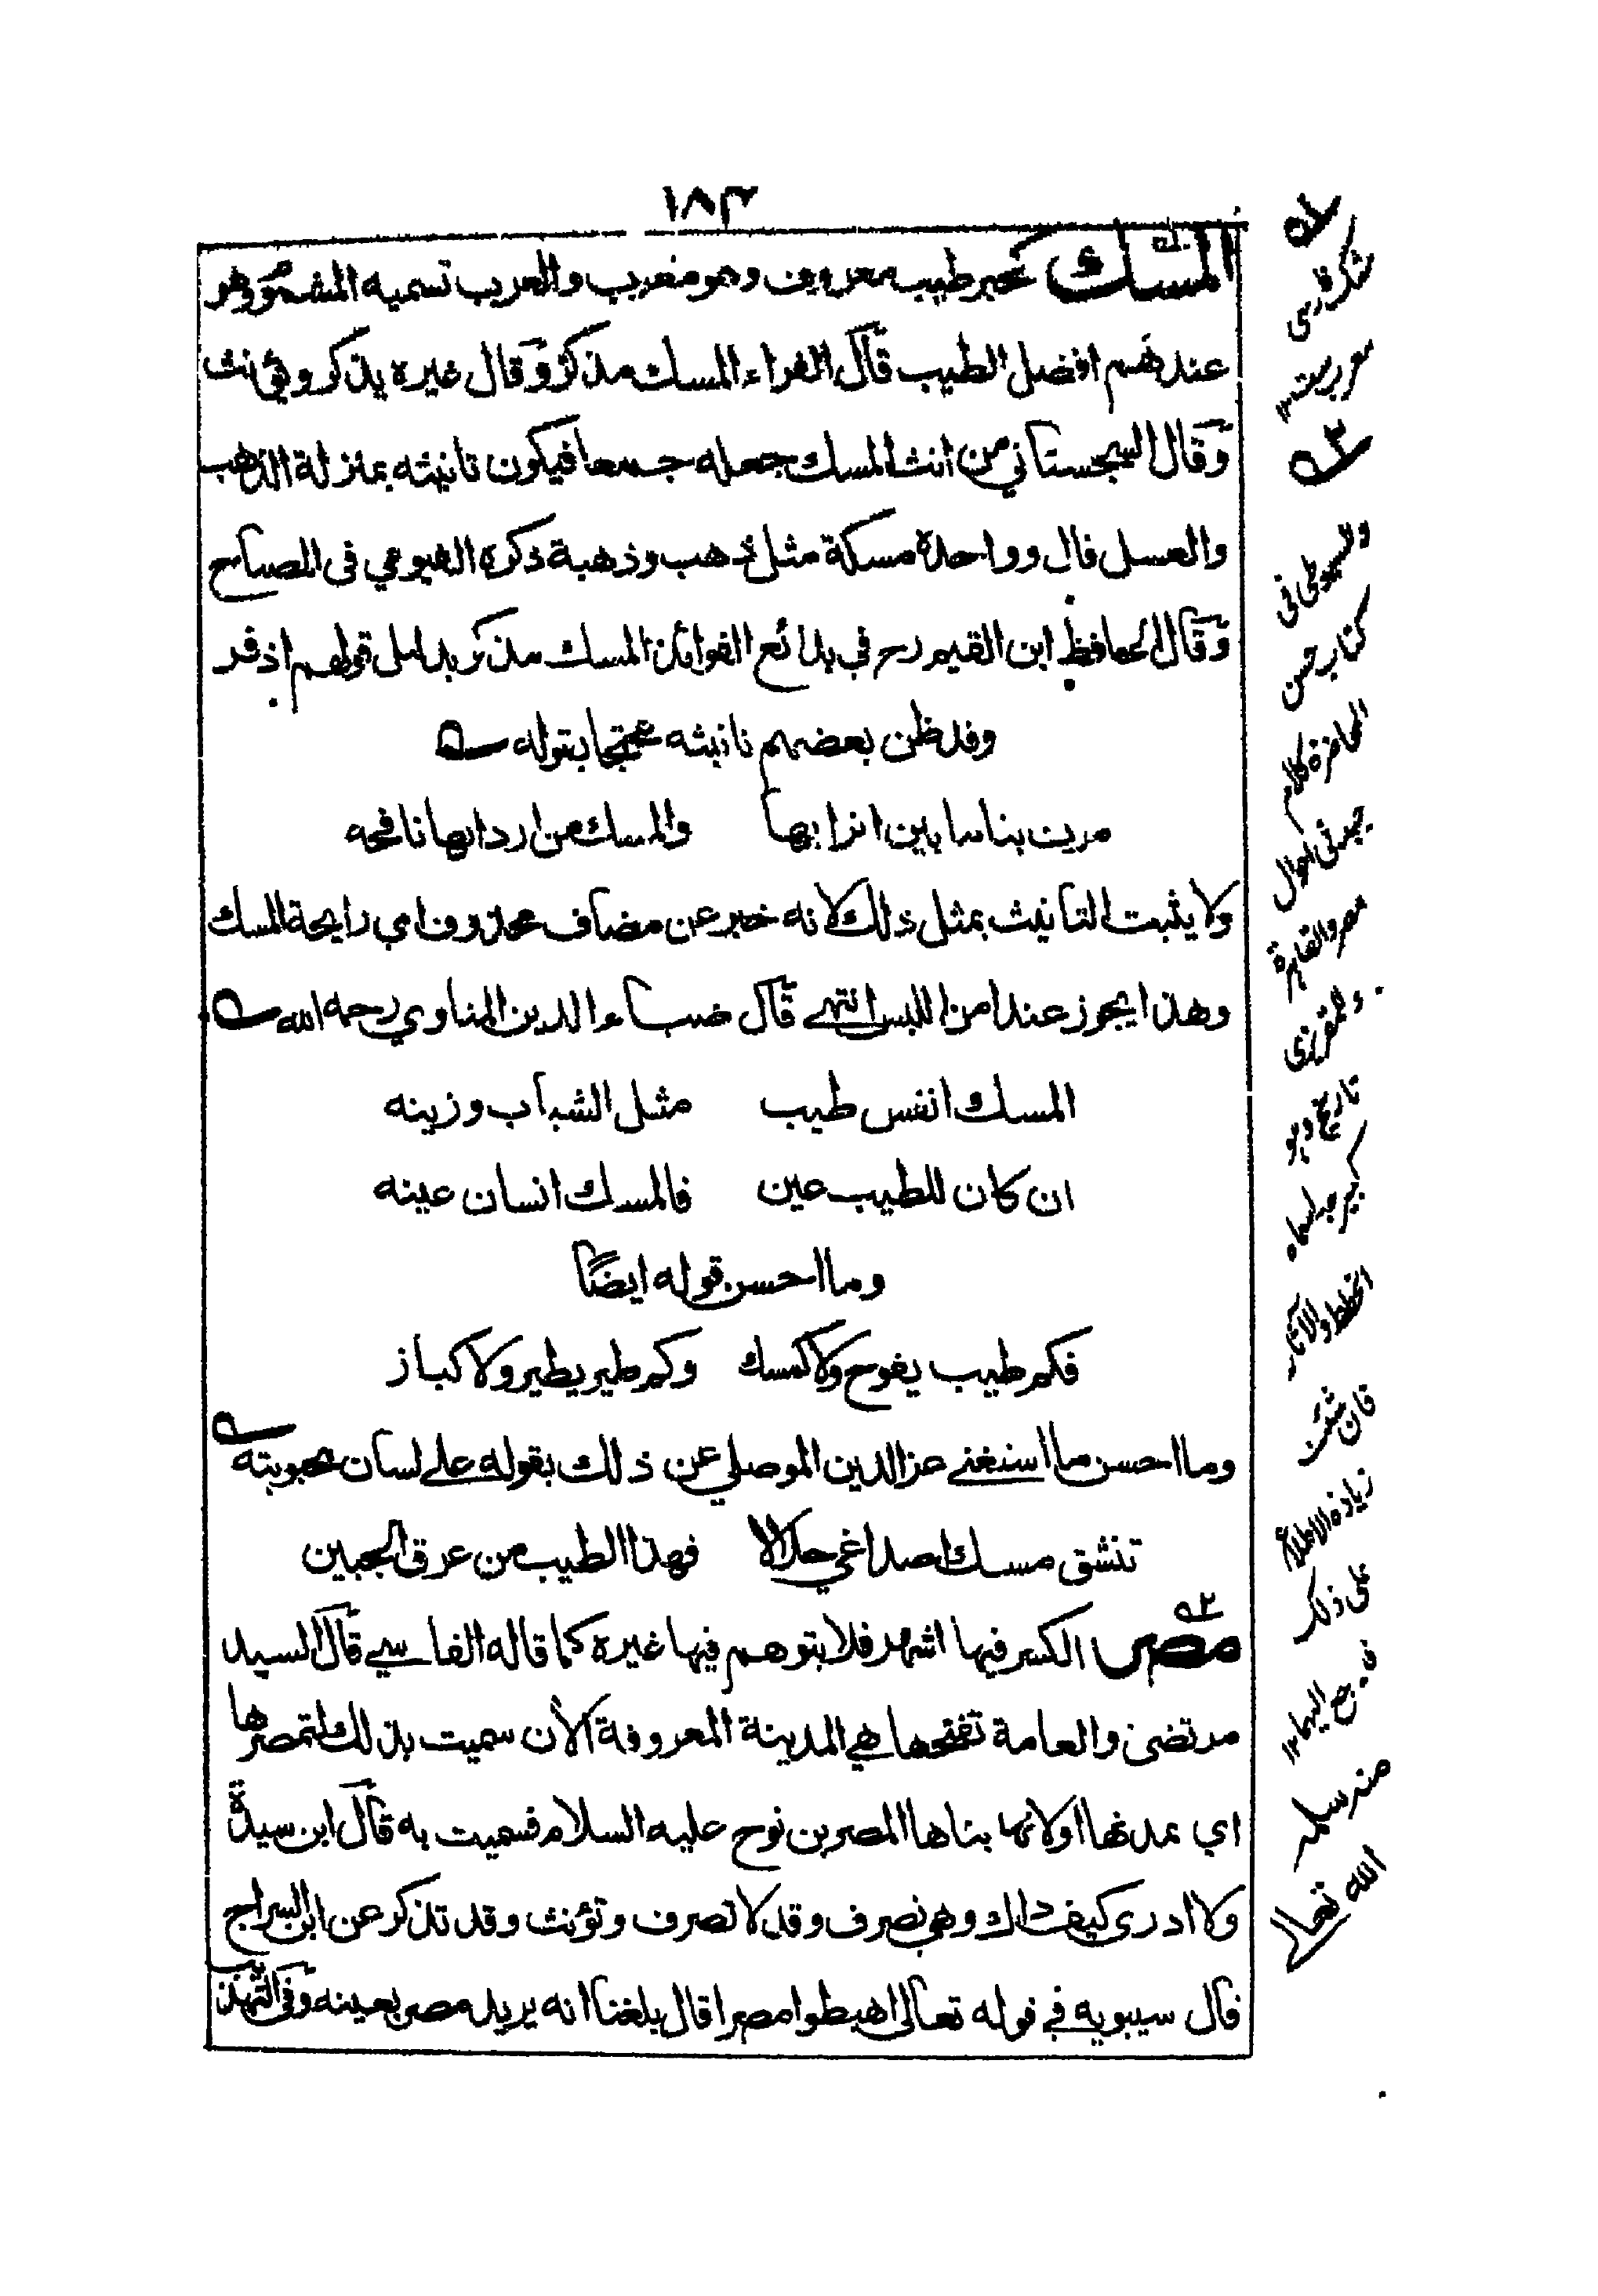 ١٨٣
المسك بخير طيب معروف وهو معرب والعرب تسميه المشموم وهو
عندهم افضل الطيب قال الفراء المسك مذكر وقال غيره يذكر ويؤنث
وقال السجستاني من انث المسك جعله جمعا فيكون تانيثه بمنزلة الذهب
والعسل قال وواحده مسكة مثل ذهب وذهبة ذكره الفيومي في المصباح
وقال الحافظ ابن القيم رح في بدائع الفوائد المسك مذكر بدليل قولهم اذفر
وقد ظن بعضهم تانيثه محتجا بقوله
مرت بنا ما بين اترابها والمسك من اردانها نافحه
ولا يثبت التانيث بمثل ذلك لانه خبر عن مضاف محذوف اي رايحة المسك
وهذا يجوز عند امن اللبس انتهى قال ضياء الدين المناوي رحمه الله
المسك انفس طيب مثل الشباب وزينه
ان كان للطيب عين فالمسك انسان عينه
وما احسن قوله ايضًا
فكم طيب يفوح ولا كمسك وكم طير يطير ولا كباز
وما احسن ما استغنى عز الدين الموصلي عن ذلك بقوله على لسان محبوبته
تنشق مسك اصداغي حلالا فهذا الطيب من عرق الجبين
مصر الكسر فيها اشهر فلا يتوهم فيها غيره كما قاله الفاسي قال السيد
مرتضى والعامة تفتحها هي المدينة المعروفة الآن سميت بذلك لتمصرها
اي تمدنها او لانها بناها المصر بن نوح عليه السلام فسميت به قال ابن سيدة
ولا ادرى كيف ذاك وهي تصرف وقد لا تصرف وتؤنث وقد تذكر عن ابن السراج
قال سيبويه في قوله تعالى اهبطوا مصرا قال بلغنا انه يريد مصر بعينه وفي التهذيب
له
مشك فارسي
معربست ١٢
٢ه
والسيوطي في
كتاب حسن
المحاضرة كلام
جيد في احوال
مصر والقاهرة
وللمقريزي
تاريخ وهو
كبير جدا سماه
الخطط والآثار
فان شئت
زيادة الاطلاع
على ذلك
فارجع اليهما ١٢
منه سلمه
الله تعالى